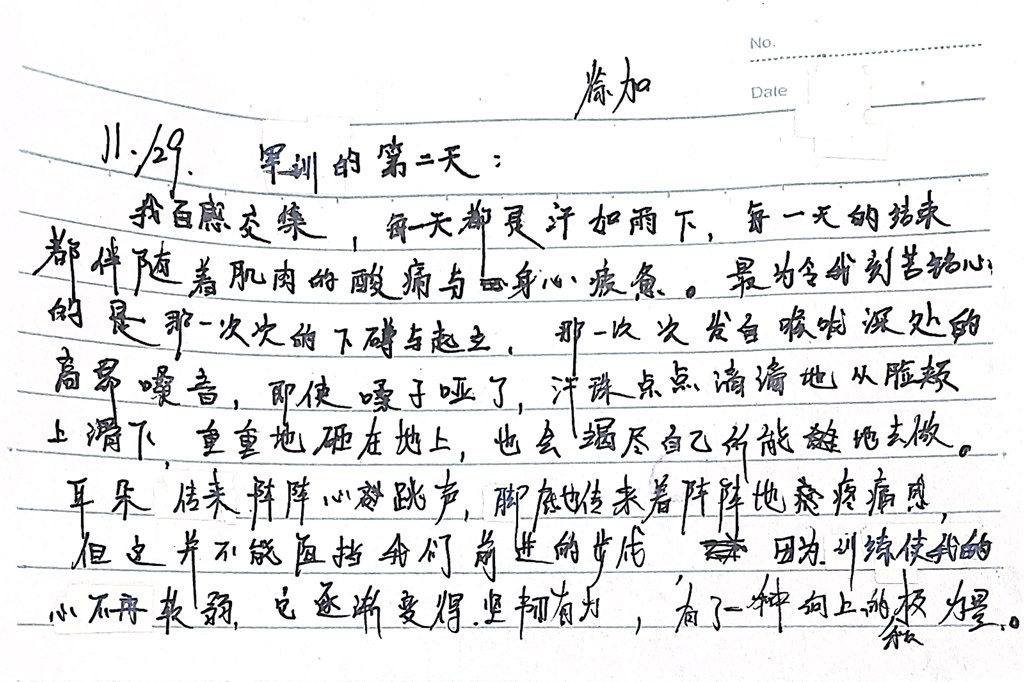 No.
Date
徐加
11./29. 军训的第二天：
我百感交集，每一天都是汗如雨下，每一天的结束
都伴随着肌肉的酸痛与身心疲惫。最为令我刻苦铭心
的是那一次次的下蹲与起立，那一次次发自喉咙深处的
高昂嗓音，即使嗓子哑了，汗珠点点滴滴地从脸颊
上滑下，重重地砸在地上，也会竭尽自己所能地去做。
耳朵传来阵阵心跳声，脚底也传来着阵阵地疼痛感，
但这并不能阻挡我们前进的步伐 因为训练使我的
心不再软弱，它逐渐变得坚韧有力，有了一种向上的力量。